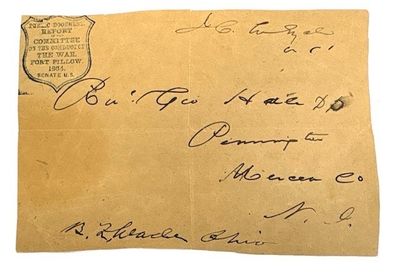 PUBLIC DOCUMENT
REPORT
OF THE
COMMITTEE
ON THE CONDUCT OF
THE WAR.
FORT PILLOW.
1864.
SENATE U.S.
Rev Geo Hale D D
Pennington
Mercer Co
N. J.
B. F. Wade Ohio